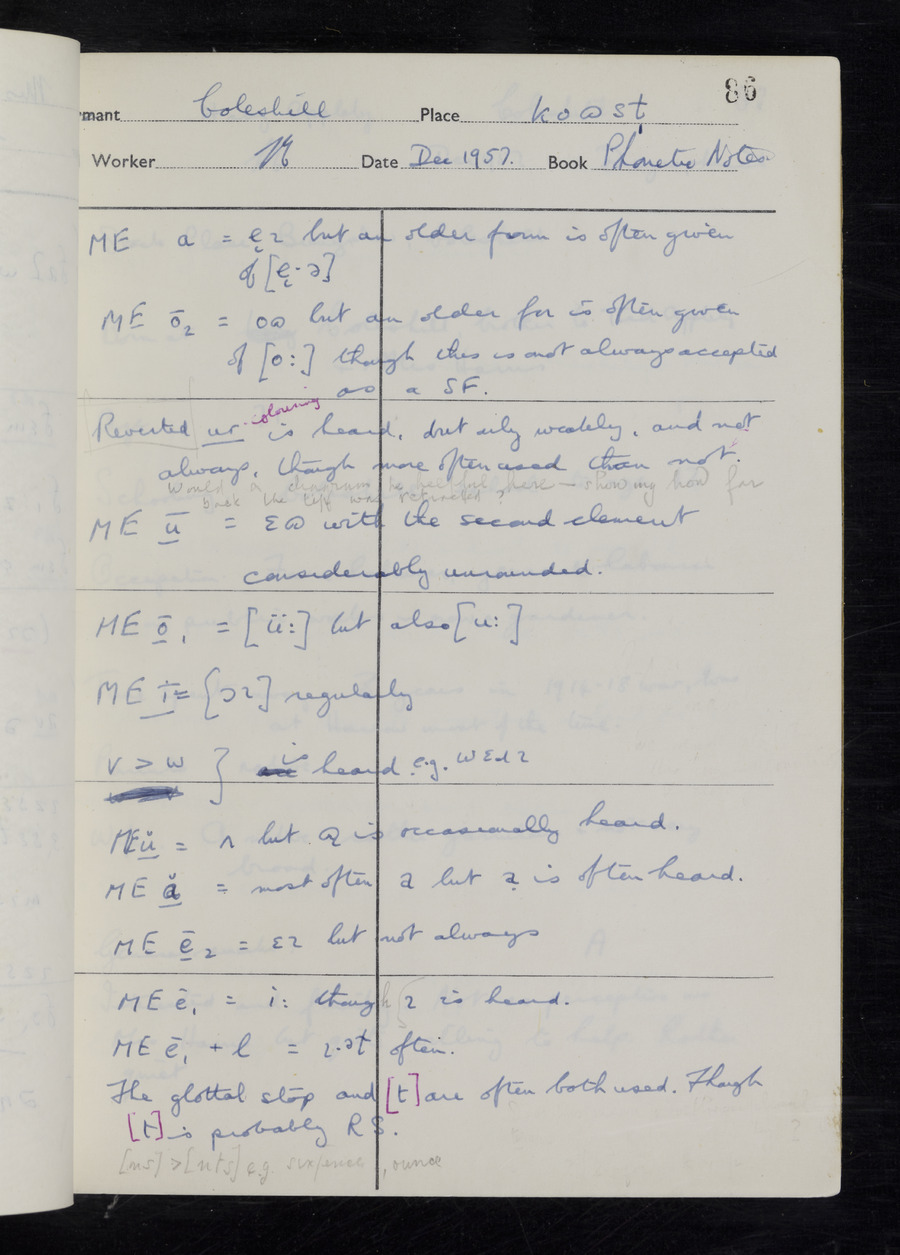 86
rmant Coleshill Place koɷst
Worker Date Dec 1957. Book Phonetic Notes
ME a = ẹɩ but an older form is often given
of [ẹ·ə]
ME ō₂ = oɷ but an older for is often given
of [o:] though this is not always accepted
as a SF.
Reverted ur-colouring is heard, but only weakly, and not
always, though more often used than not.
Would a diagram be helpful here – showing how far
back the was retracted?
ME ū = ɛɷ with the second element
considerably unrounded.
ME ō₁ = [ü:] but also [u:]
ME ī = [ɔɩ] regularly
v > w } is heard e.g. wɛdɩ
ME ŭ = ʌ but ɷ̣ is occasionally heard.
ME ă = most often a but ạ is often heard.
ME ē₂ = ɛɩ but not always
ME ē₁ = i: though ɩ is heard.
ME ē₁ + l = ɩ·əɫ often.
The glottal stop and [t] are often both used. Though
[t] is probably RS.
[ns] > [nts] e.g. sixpence, ounce